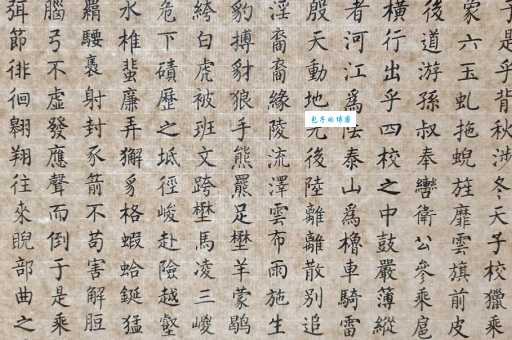 于是乎背秋涉冬天子校獵乘
象六玉虬拖蜺旌靡雲旗前皮
後道游孫叔奉轡衛公參乘扈
橫行出乎四校之中鼓嚴簿縱
者河江為阹泰山為櫓車騎雷
殷天動地先後陸離離散別追
淫裔裔緣陵流澤雲布雨施生
豹搏豺狼手熊羆足壄羊蒙鶡
絝白虎被班文跨壄馬凌三嵕
危下磧歷之坻徑峻赴險越壑
水椎蜚廉弄獬豸格蝦蛤鋋猛
羂騕褭射封豕箭不苟害解脰
腦弓不虛發應聲而倒于是乘
弭節徘徊翱翔往來睨部曲之